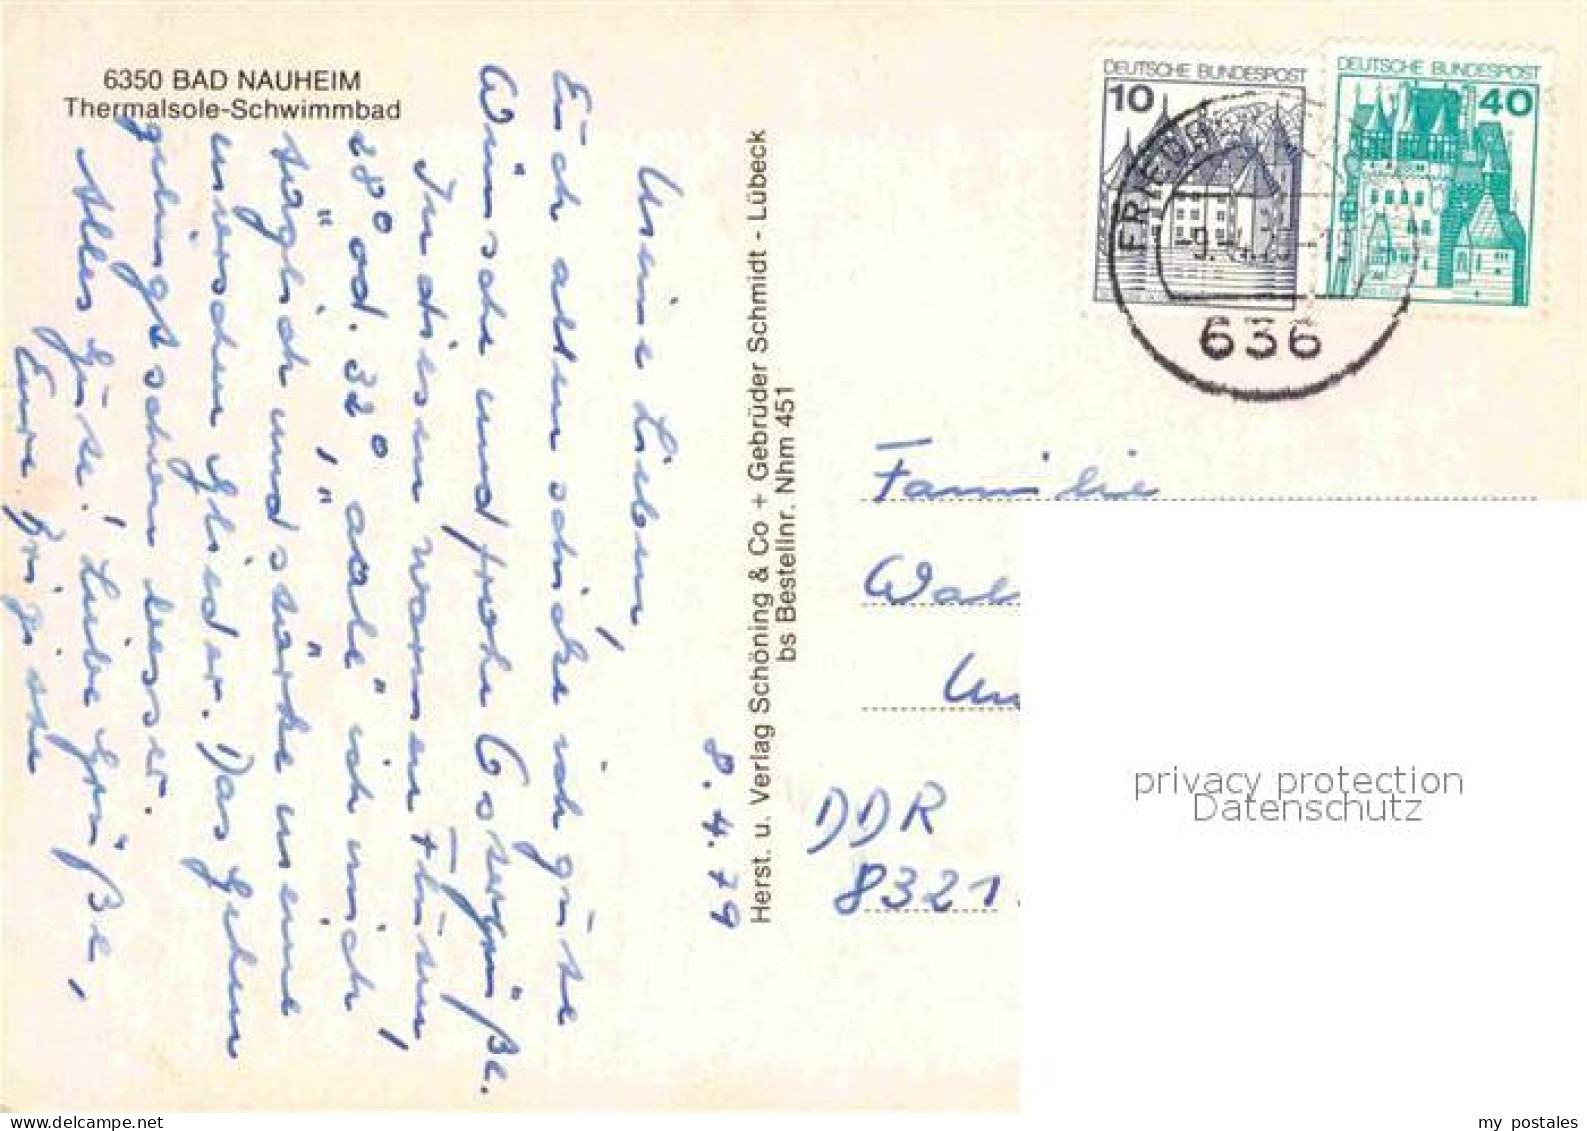 6350 BAD NAUHEIM
Thermalsole-Schwimmbad
8.4.79
Meine Lieben,
Euch allen schicke ich gute
Wünsche und frohe Ostergrüße.
In diesem warmen
28° od. 32°, "aale" ich mich
täglich und stärke meine
Glieder. Das Gehen
gelingt schon besser.
Alles Gute! Liebe Grüße,
Eure
Herst. u. Verlag Schöning & Co + Gebrüder Schmidt - Lübeck
bs Bestellnr. Nhm 451
DEUTSCHE BUNDESPOST
10
DEUTSCHE BUNDESPOST
40
636
Familie
DDR
8321
privacy protection
Datenschutz
my postales